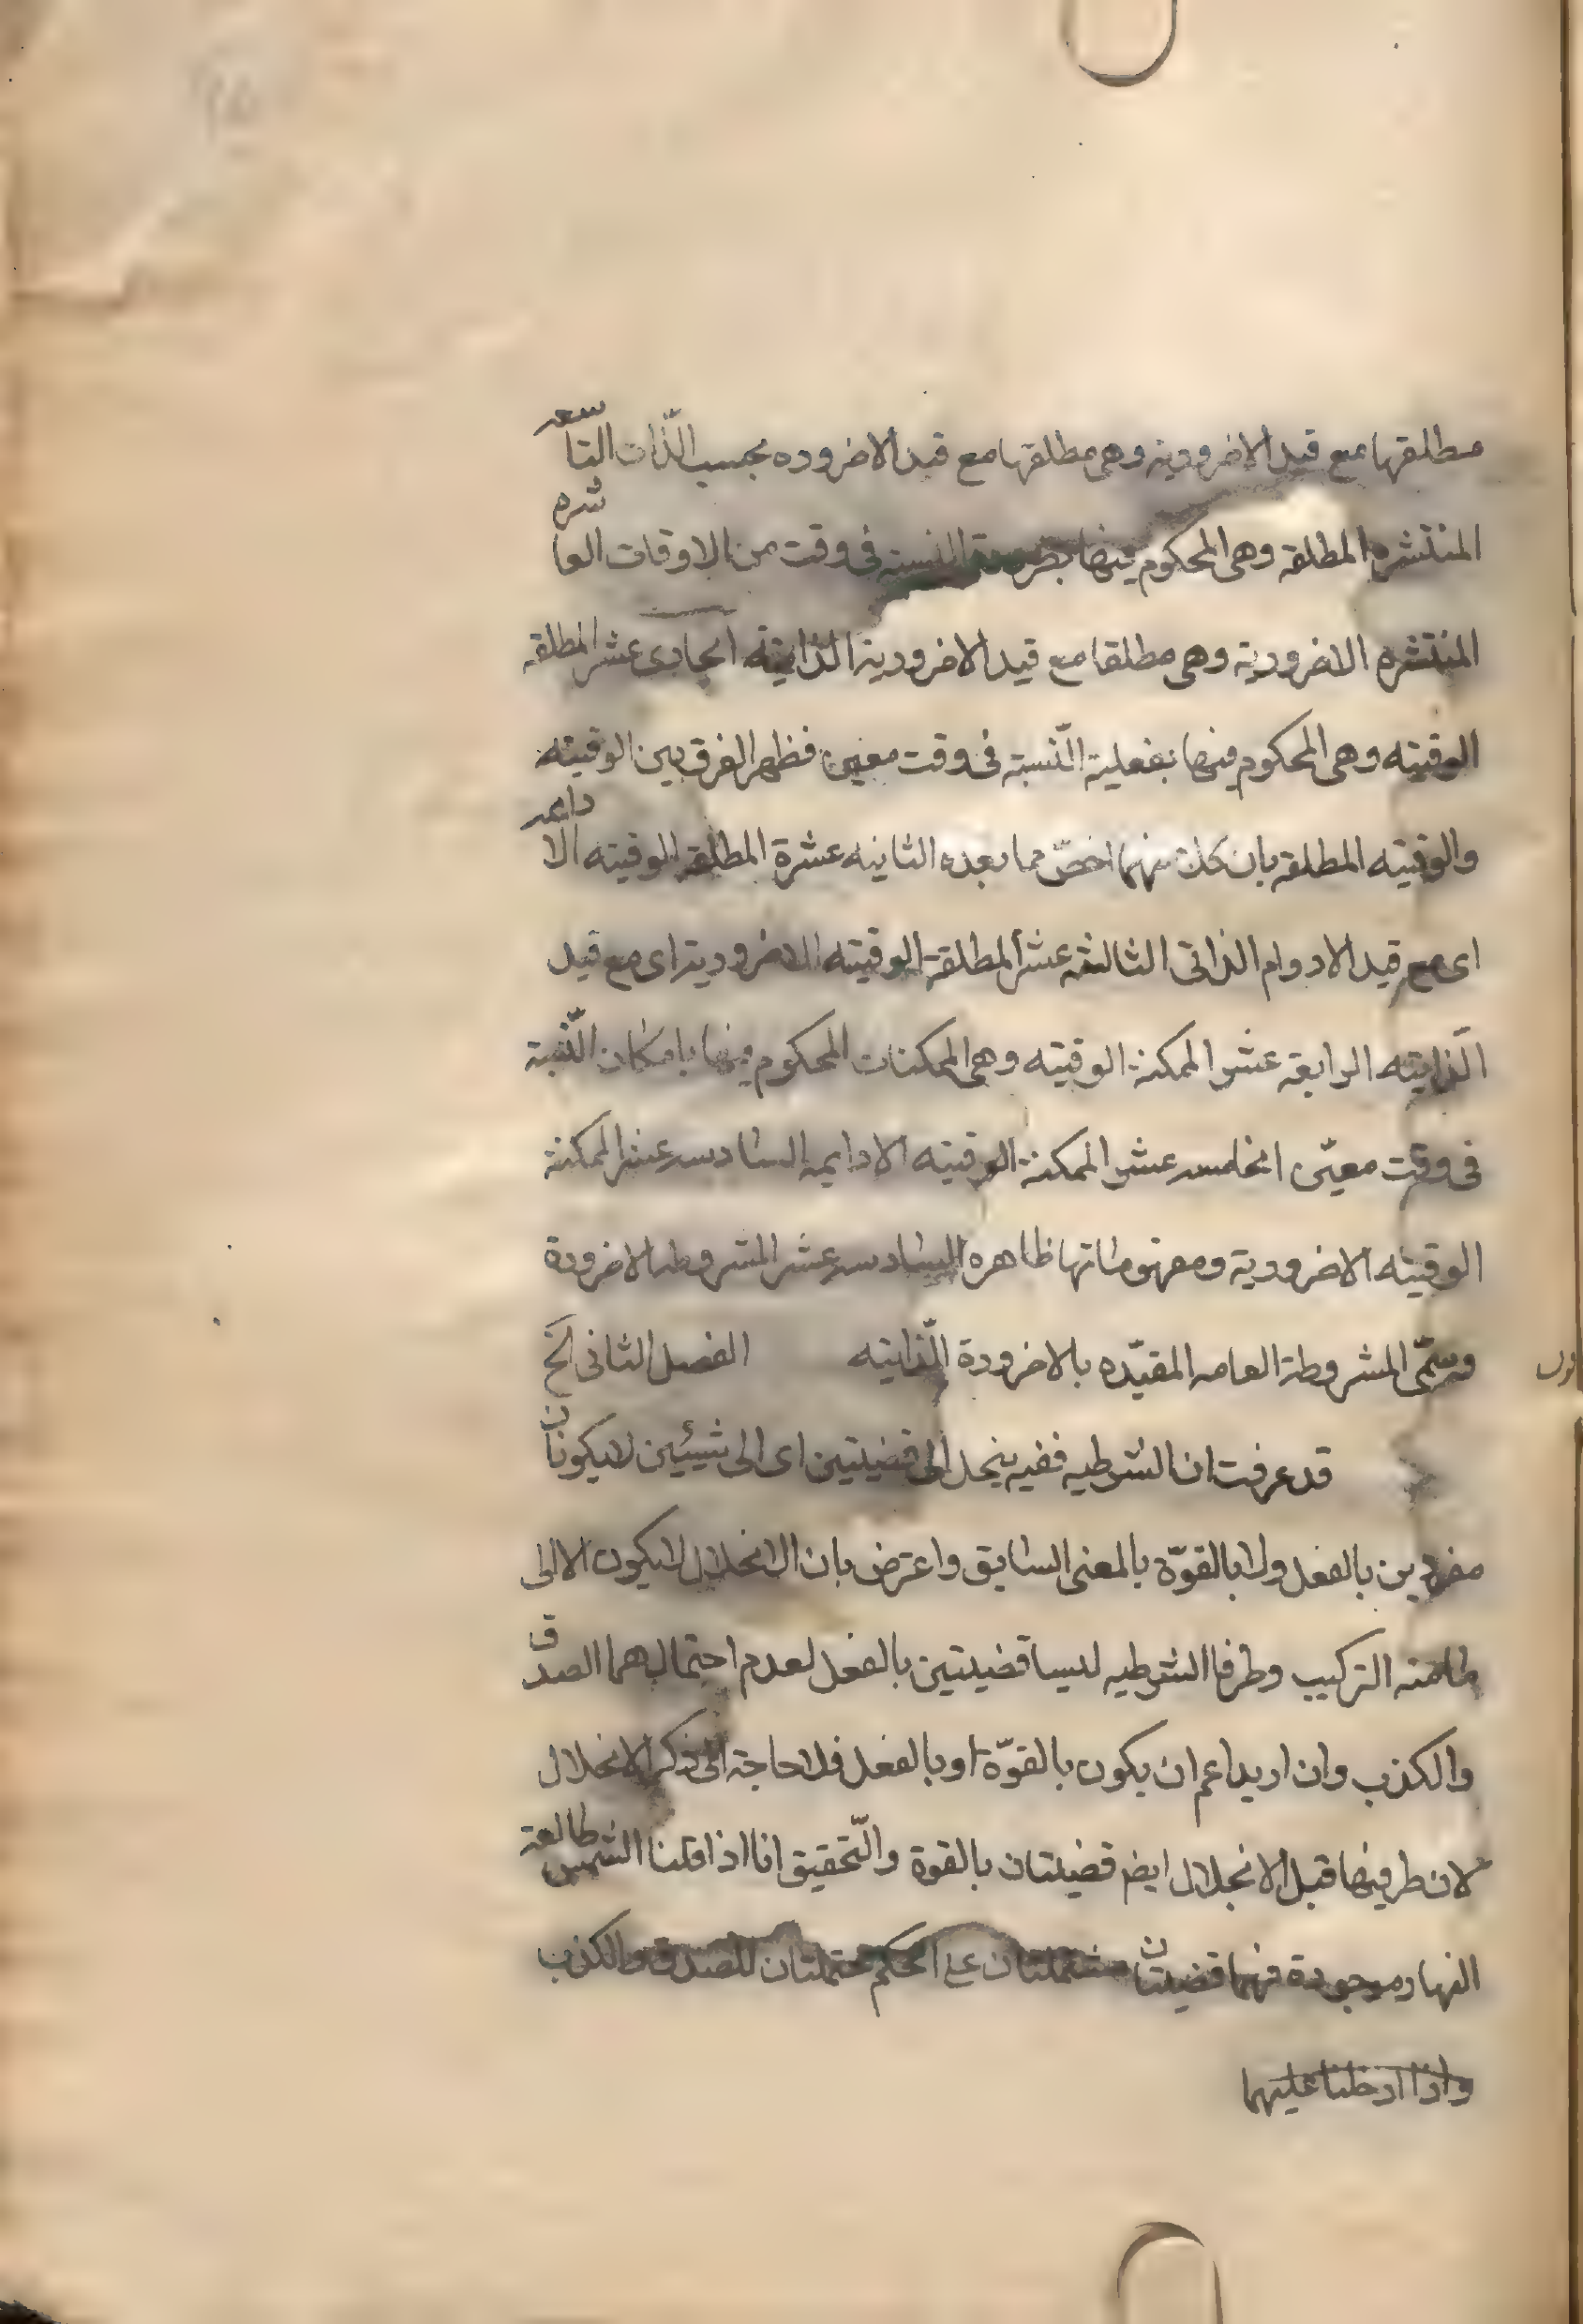 مطلقها مع قيد الاضرورية وهى مطلقها مع قيد الاضروره بحسب الذّات التاسعه
المنتشره المطلقه وهى المحكوم فيها بضرورة النسبته فى وقت من الاوقات العاشره
المنتشره الاضرورية وهى مطلقا مع قيد الاضرورية الذّايتة الحادى عشر المطلقه
الوقيته وهى المحكوم فيها بفعلية النّسبته فى وقت معين فظهر الفرق بين الوقيته
والوقيته المطلقه بان كلا منهما اخصّ مما بعده الثانيه عشرة المطلقه الوقيته الادايمه
اى مع قيد الادوام الذاتى الثالثه عشر المطلقة الوقيته الاضرورية اى مع قيد
الّذايته الرابعه عشر الممكنة الوقيته وهى الممكنات المحكوم فيها بامكان النّسبة
فى وقت معيّن الخامسه عشر الممكنة الوقيته الادايمه السادسه عشر الممكنة
الوقيته الاضرورية ومفهوماتها ظاهره السادسه عشر المشروطه الاضرورة
وسمّى المشروطة العامه المقيّده بالاضرورة الّذايته الفصل الثانى الخ
قد عرفت ان الشرطيه ففيه ينحل الى قضيتين اى الى شيئين لايكونان
مفردين بالفعل ولا بالقوّة بالمعنى السابق واعترض بان الانحلال لايكون الا الى
مامنه التركيب وطرفا الشرطيه ليسا قضيتين بالفعل لعدم احتمالهما الصدق
والكذب وان اريد اعم ان يكون بالقوّة او بالفعل فلا حاجة الى ذكر الانحلال
لان طرفيها قبل الانحلال ايضم قضيتان بالقوة والتّحقيق انا اذا قلنا الشمس طالعة
النهار موجودة فهما قضيتان مشتملتان على الحكم محتملتان للصدق والكذب
واذا ادخلنا عليهما